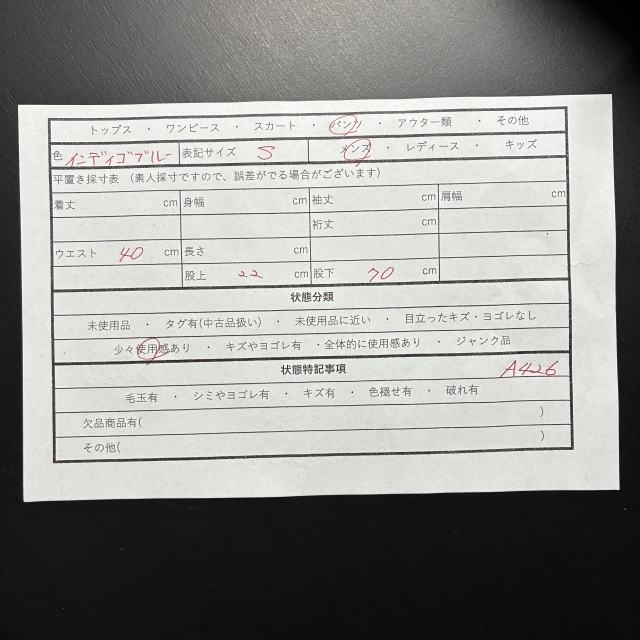 トップス ・ ワンピース ・ スカート ・ パンツ ・ アウター類 ・ その他
色 インディゴブルー 表記サイズ S メンズ ・ レディース ・ キッズ
平置き採寸表 (素人採寸ですので、誤差がでる場合がございます)
着丈 cm 身幅 cm 袖丈 cm 肩幅 cm
裄丈 cm
ウエスト 40 cm 長さ cm
股上 22 cm 股下 70 cm
状態分類
未使用品 ・ タグ有(中古品扱い) ・ 未使用品に近い ・ 目立ったキズ・ヨゴレなし
少々使用感あり ・ キズやヨゴレ有 ・全体的に使用感あり ・ ジャンク品
状態特記事項 A426
毛玉有 ・ シミやヨゴレ有 ・ キズ有 ・ 色褪せ有 ・ 破れ有
欠品商品有( )
その他( )